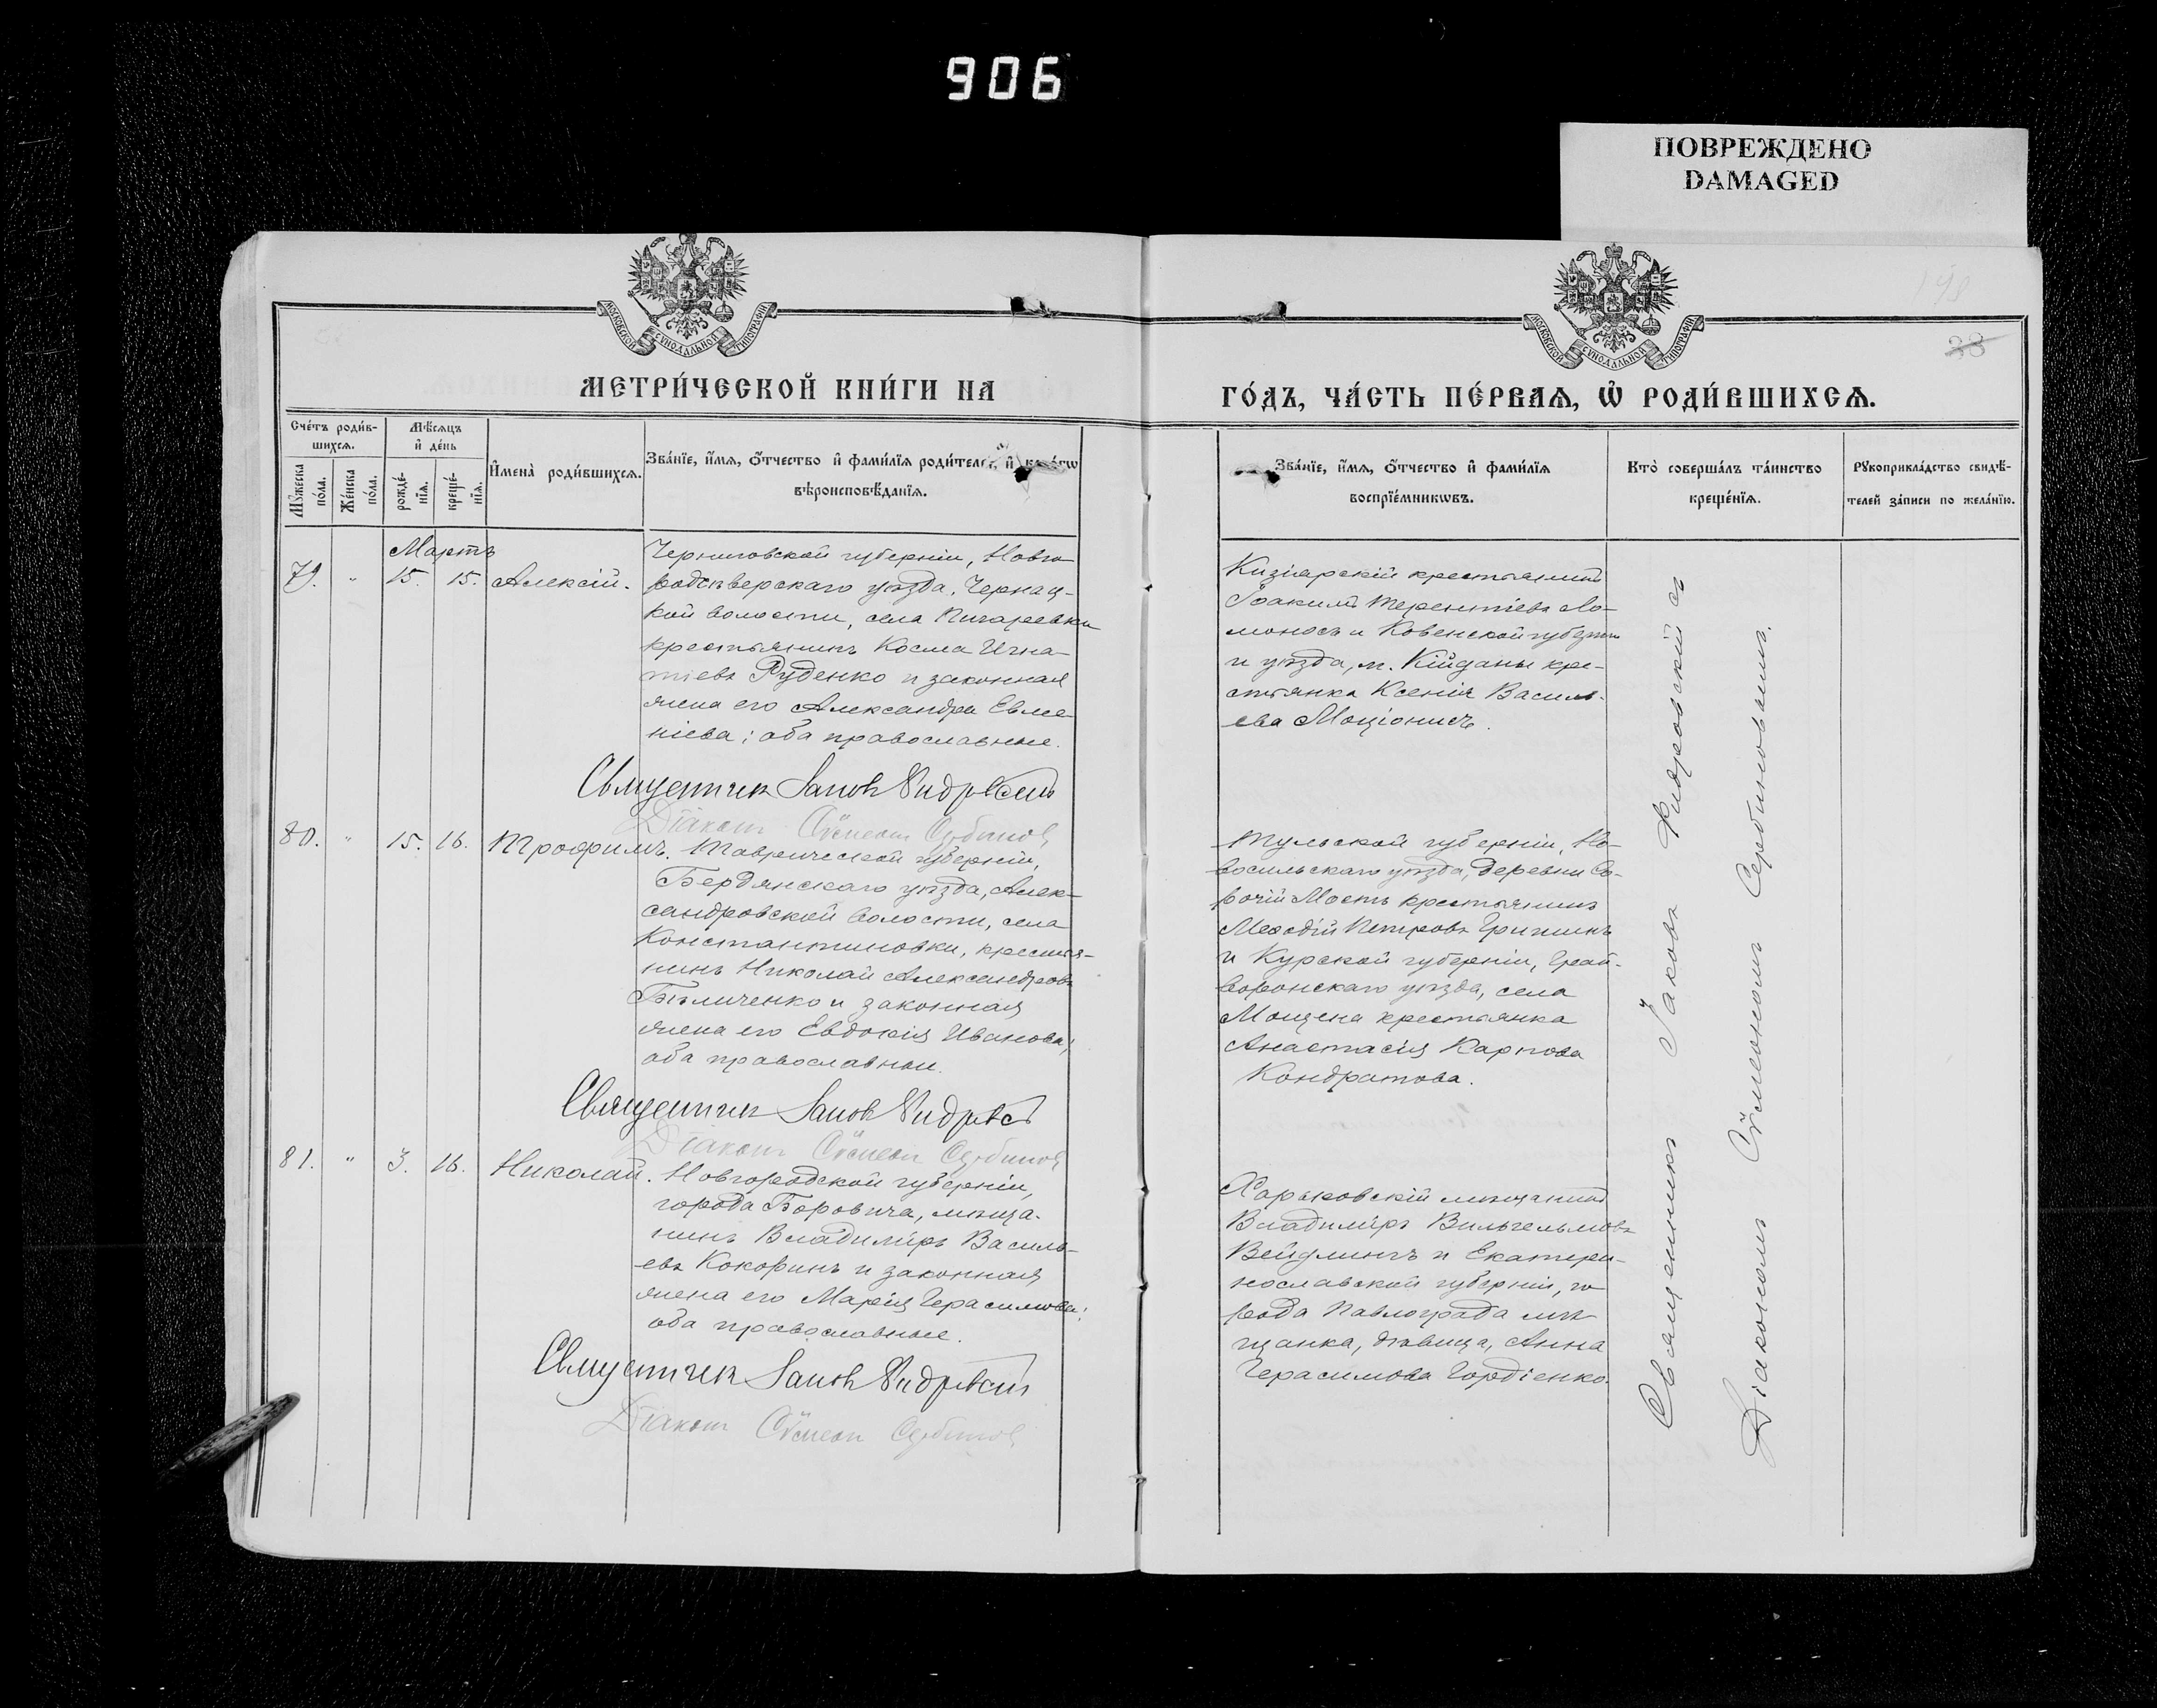 906
ПОВРЕЖДЕНО
DAMAGED
МОСКОВСКОЙ СѴНОДАЛЬНОЙ ТИПОГРАФІИ
МОСКОВСКОЙ СѴНОДАЛЬНОЙ ТИПОГРАФІИ
38
МЕТРИ́ЧЕСКОЙ КНИ́ГИ НА
ГО́ДЪ, ЧА́СТЬ ПЕ́РВАѦ, Ѡ҆ РОДИ́ВШИХСѦ.
Сче́тъ роди́в-
шихсѧ.
Мѣ́сѧцъ
и҆ де́нь
Мꙋ́жеска
по́ла.
Же́нска
по́ла.
рожде́-
нїѧ.
креще́-
нїѧ.
И҆мена̀ роди́вшихсѧ.
Зва́нїе, и҆́мѧ, ѻ҆́тчество и҆ фами́лїѧ роди́телей, и҆
вѣроисповѣ́данїѧ.
Зва́нїе, и҆́мѧ, ѻ҆́тчество и҆ фами́лїѧ
воспрїе́мникѡвъ.
Кто̀ соверша́лъ та́инство
креще́нїѧ.
Рꙋкоприкла́дство свидѣ́-
телей за́писи по жела́нїю.
Мартъ
79. " 15. 15. Алексій.
Черниговской губерніи, Новго-
родсѣверскаго уѣзда, Чернац-
кой волости, села Пигаревки
крестьянинъ Косма Игна-
тіевъ Руденко и законная
жена его Александра Евме-
ніева; оба православные.
Священникъ Іаковъ
Діаконъ Сѵмеонъ Сербиновъ
Кизіярскій крестьянинъ
Іоакимъ Терентіевъ Ло-
моносъ и Ковенской губерніи
и уѣзда, м. Кійданы кре-
стьянка Ксенія Василь-
ева Моціонисъ.
80. " 15. 16. Трофимъ.
Таврической губерніи,
Бердянскаго уѣзда, Алек-
сандровской волости, села
Константиновки, крестья-
нинъ Николай Александровъ
Бѣличенко и законная
жена его Евдокія Иванова;
оба православные.
Священникъ Іаковъ
Діаконъ Сѵмеонъ Сербиновъ
Тульской губерніи, Но-
восильскаго уѣзда, деревни
Мостъ крестьянинъ
Меѳодій Петровъ Гришинъ
и Курской губерніи, Грай-
воронскаго уѣзда, села
Мощена крестьянка
Анастасія Карпова
Кондратова.
81. " 3. 16. Николай.
Новгородской губерніи,
города Боровича, мѣща-
нинъ Владиміръ Василь-
евъ Кокоринъ и законная
жена его Марія Герасимова;
оба православные.
Священникъ Іаковъ
Діаконъ Сѵмеонъ Сербиновъ
Харьковскій мѣщанинъ
Владиміръ Вильгельмовъ
Вейдлингъ и Екатери-
нославской губерніи, го-
рода Павлограда мѣ-
щанка, дѣвица, Анна
Герасимова Гордіенко.
Священникъ Іаковъ съ
Діакономъ Сѵмеономъ Сербиновымъ.